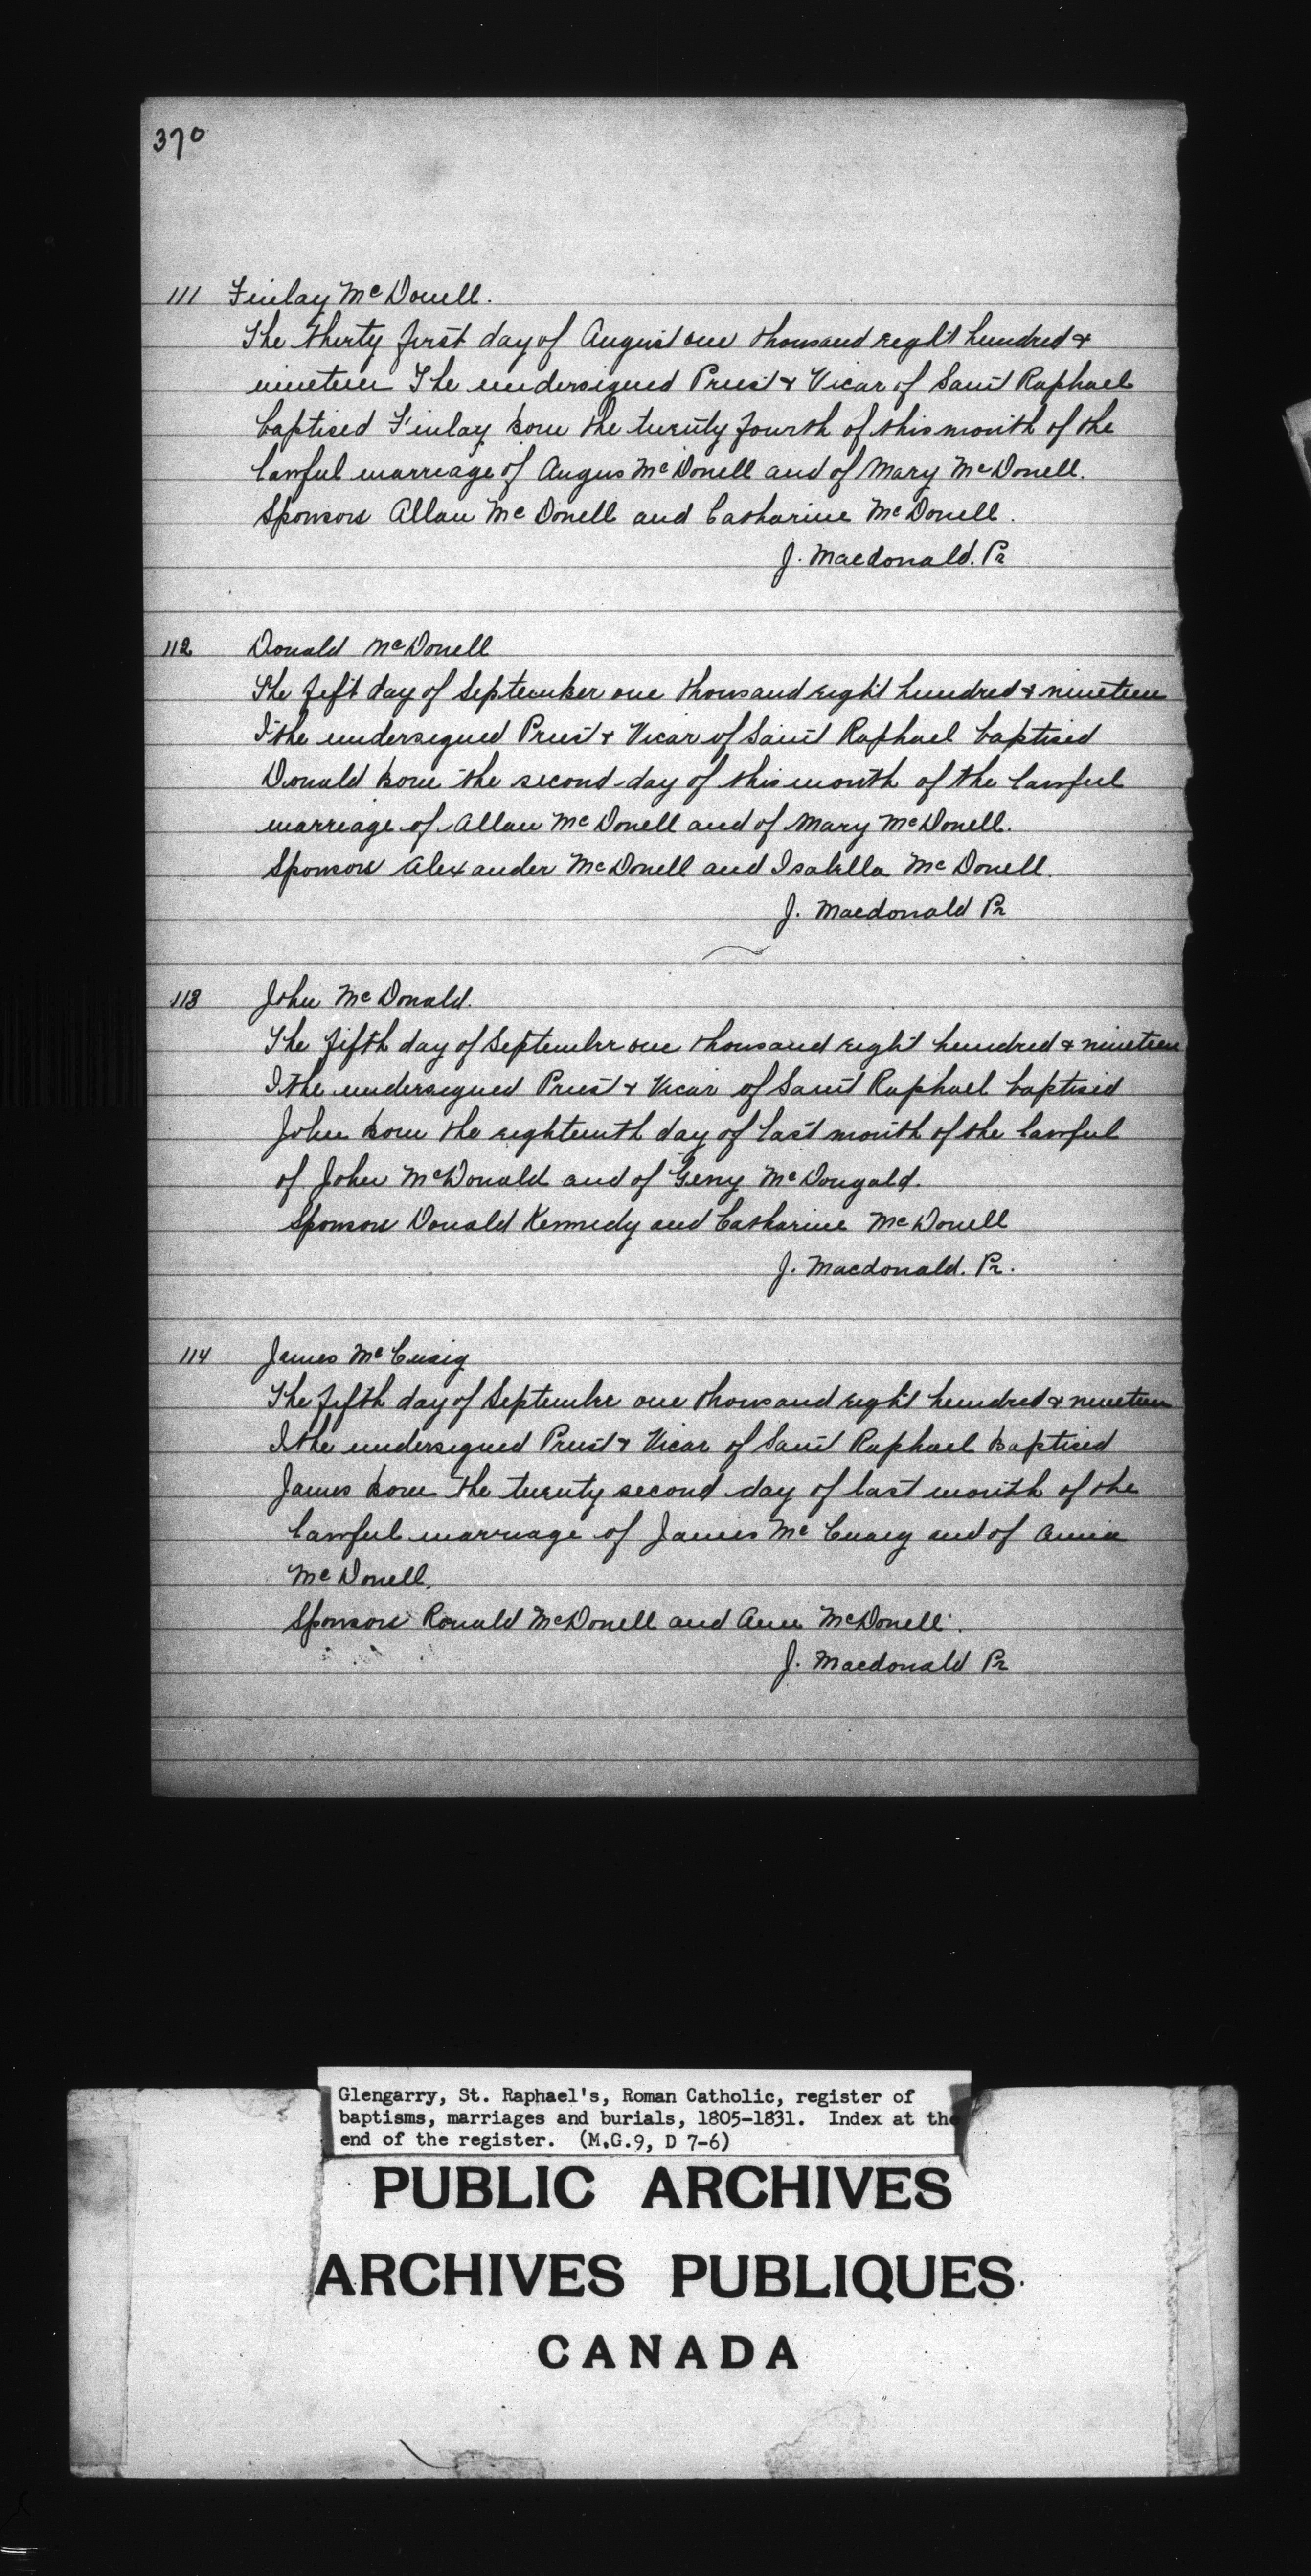 370
111 Finlay McDonell.
The thirty first day of August one thousand eight hundred &
nineteen I the undersigned Priest & Vicar of Saint Raphael
baptised Finlay born the twenty fourth of this month of the
lawful marriage of Angus McDonell and of Mary McDonell.
Sponsors Allan McDonell and Catharine McDonell.
J. Macdonald. Pr
112 Donald McDonell
The fift day of September one thousand eight hundred & nineteen
I the undersigned Priest & Vicar of Saint Raphael baptised
Donald born the second day of this month of the lawful
marriage of Allan McDonell and of Mary McDonell.
Sponsors Alexander McDonell and Isabella McDonell.
J. Macdonald Pr
113 John McDonald.
The fifth day of September one thousand eight hundred & nineteen
I the undersigned Priest & Vicar of Saint Raphael baptised
John born the eighteenth day of last month of the lawful
of John McDonald and of Geny McDougald.
Sponsors Donald Kennedy and Catharine McDonell
J. Macdonald. Pr.
114 James McCuaig
The fifth day of September one thousand eight hundred & nineteen
I the undersigned Priest & Vicar of Saint Raphael Baptised
James born the twenty second day of last month of the
lawful marriage of James McCuaig and of
McDonell.
Sponsors Ronald McDonell and Ann McDonell.
J. Macdonald Pr
Glengarry, St. Raphael's, Roman Catholic, register of
baptisms, marriages and burials, 1805-1831. Index at the
end of the register. (M.G.9, D 7-6)
PUBLIC ARCHIVES
ARCHIVES PUBLIQUES
CANADA